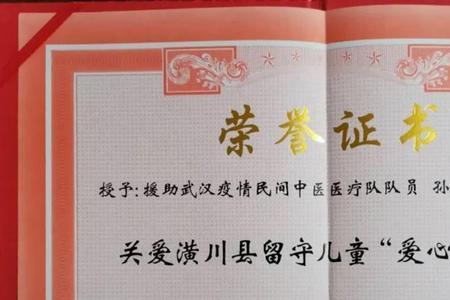 荣誉证书
授予：援助武汉疫情民间中医医疗队队员 孙
关爱潢川县留守儿童“爱心